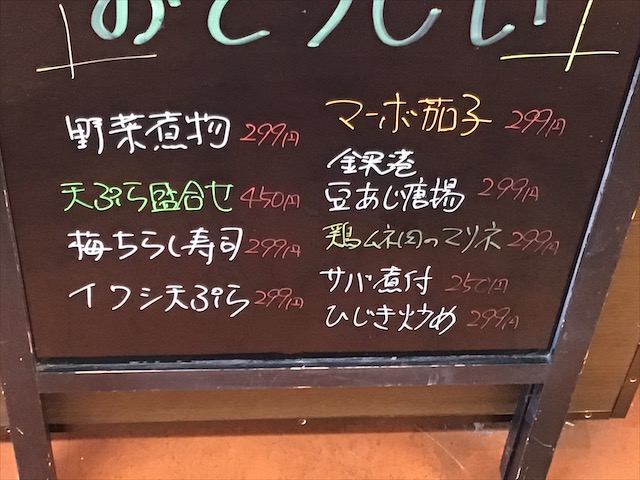 おとうしい
野菜煮物 299円
天ぷら盛合せ 450円
梅ちらし寿司 299円
イワシ天ぷら 299円
マーボ茄子 299円
銚港
豆あじ唐揚 299円
鶏ムネ肉のマリネ 299円
サバ煮付 250円
ひじき炒め 299円